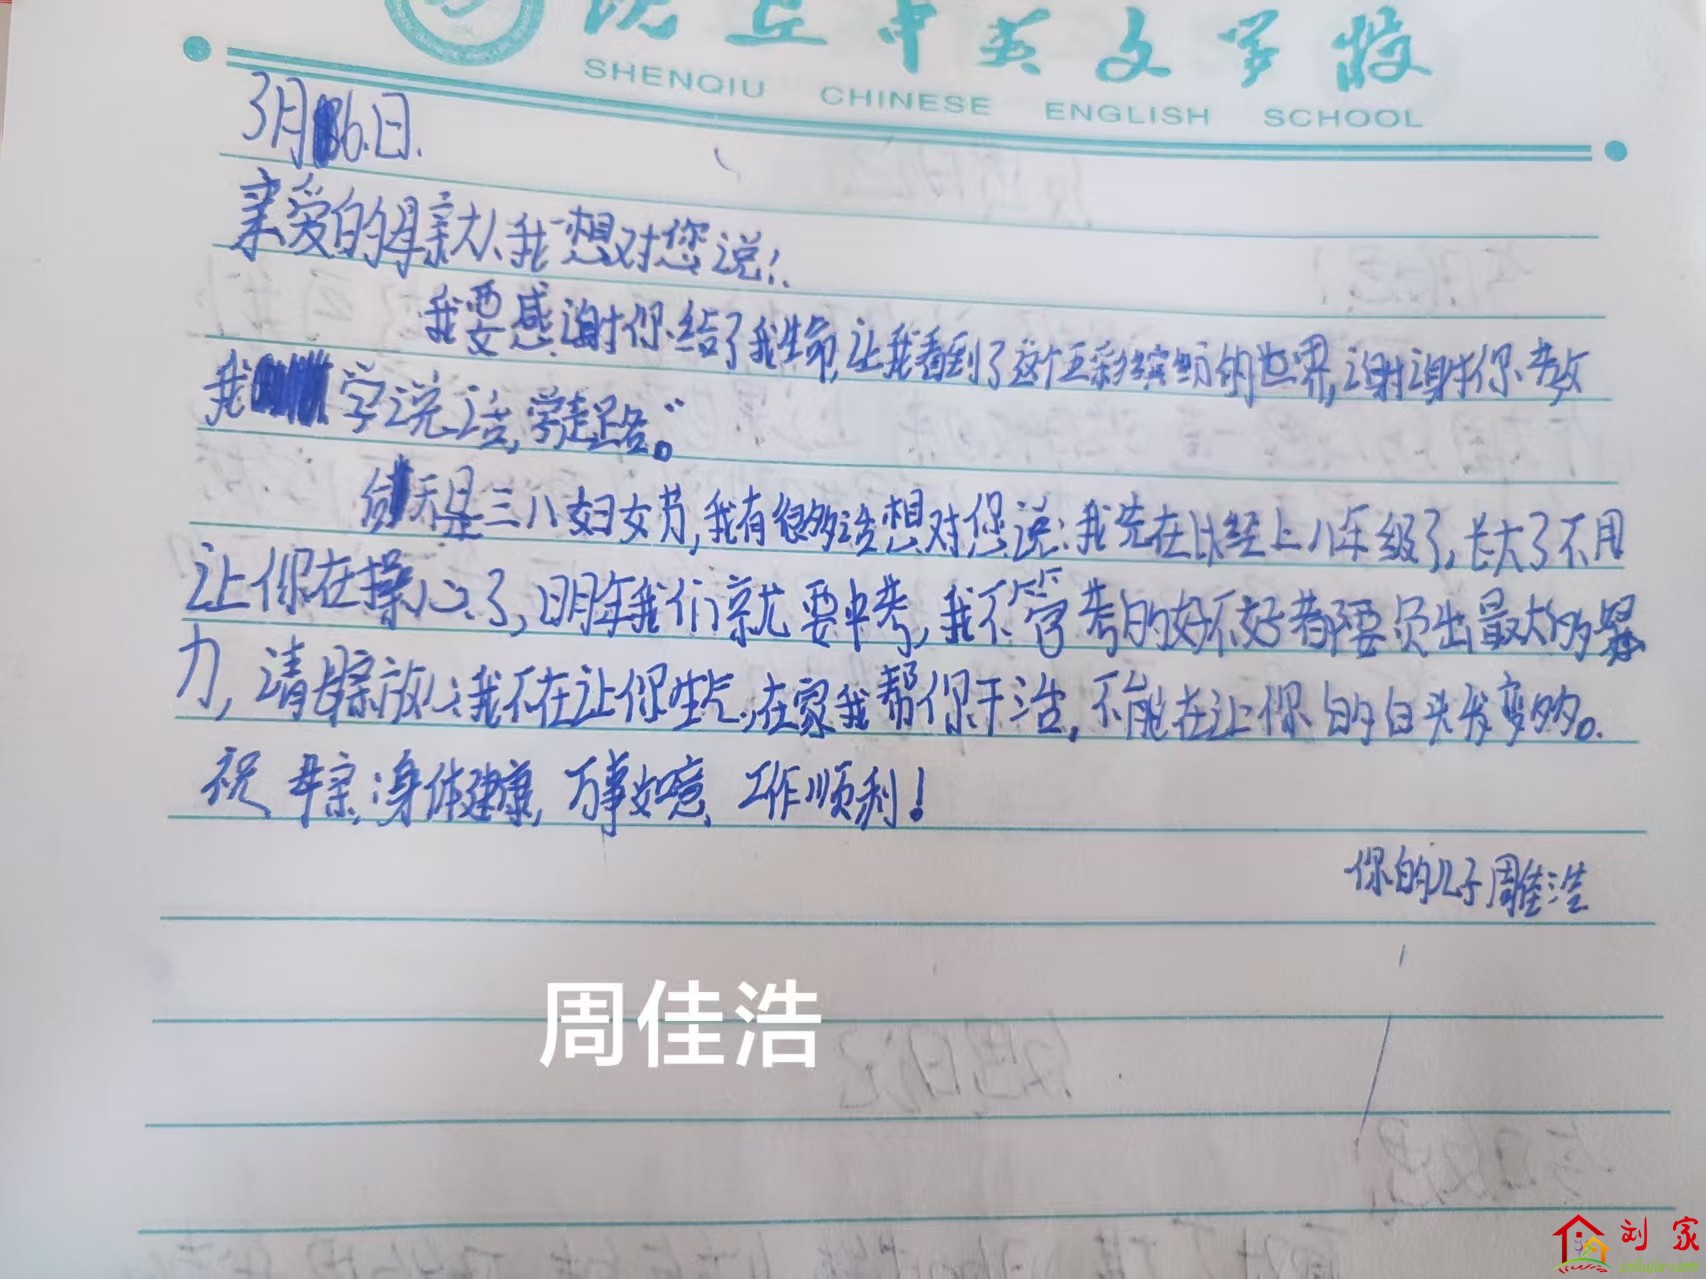 沈丘中英文学校
SHENQIU CHINESE ENGLISH SCHOOL
3月6日.
亲爱的母亲大人我想对您说:
我要感谢你给了我生命,让我看到了这个五彩缤纷的世界,谢谢你教
我学说话,学走路。
天是三八妇女节,我有很多话想对您说:我先在以经上八年级了,长大了不用
让你在操心了,明年我们就要中考,我不管考的好不好都要负出最大的努
力,请母亲放心我不在让你生气,在家我帮你干活,不能在让你的白头发变多。
祝母亲:身体建康,万事如意、工作顺利!
你的儿子周佳浩
周佳浩
刘家